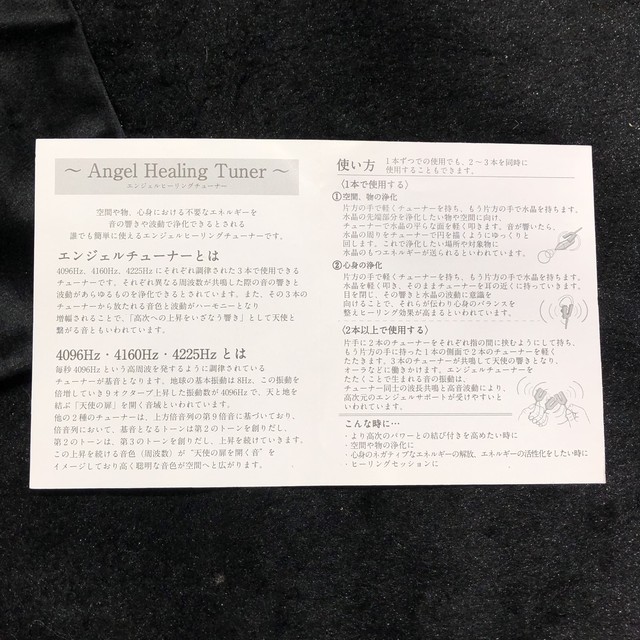 ～ Angel Healing Tuner ～
エンジェルヒーリングチューナー
空間や物、心身における不要なエネルギーを
音の響きや波動で浄化できるとされる
誰でも簡単に使えるエンジェルヒーリングチューナーです。
エンジェルチューナーとは
4096Hz、4160Hz、4225Hzにそれぞれ調律された3本で使用できる
チューナーです。それぞれ異なる周波数が共鳴した際の音の響きと
波動があらゆるものを浄化できるとされています。また、その3本の
チューナーから放たれる音色と波動がハーモニーとなり
増幅されることで、「高次への上昇をいざなう響き」として天使と
繋がる音ともいわれています。
4096Hz・4160Hz・4225Hzとは
毎秒4096Hzという高周波を発するように調律されている
チューナーが基音となります。地球の基本振動は8Hz、この振動を
倍増していき9オクターブ上昇した振動数が4096Hzで、天と地を
結ぶ「天使の扉」を開く音域といわれています。
他の2種のチューナーは、上方倍音列の第9倍音に基づいており、
倍音列において、基音となるトーンは第2のトーンを創りだし、
第2のトーンは、第3のトーンを創りだし、上昇を続けていきます。
この上昇を続ける音色（周波数）が“天使の扉を開く音”を
イメージしており高く聡明な音色が空間へと広がります。
使い方 1本ずつでの使用でも、2～3本を同時に
使用することもできます。
〈1本で使用する〉
①空間、物の浄化
片方の手で軽くチューナーを持ち、もう片方の手で水晶を持ちます。
水晶の先端部分を浄化したい物や空間に向け、
チューナーで水晶の平らな面を軽く叩きます。音が響いたら、
水晶の周りをチューナーで円を描くようにゆっくりと
回します。これで浄化したい場所や対象物に
水晶のもつエネルギーが送られるといわれています。
②心身の浄化
片方の手で軽くチューナーを持ち、もう片方の手で水晶を持ちます。
軽く叩き、そのままチューナーを耳の近くに持っていきます。
目を閉じ、その響きと水晶の波動に意識を
向けることで、それらが伝わり心身のバランスを
整えヒーリング効果が高まるといわれています。
〈2本以上で使用する〉
片手に2本のチューナーをそれぞれ指の間に挟むようにして持ち、
もう片方の手に持った1本の側面で2本を軽く
たたきます。3本のチューナーが共鳴して天使の響きとなり、
オーラなどに働きかけます。エンジェルチューナーを
たたくことで生まれる音の振動は、
チューナー同士の波長共鳴と高音波動により、
高次元のエンジェルサポートが受けやすいと
いわれています。
こんな時に…
・より高次のパワーとの結び付きを高めたい時に
・空間や物の浄化に
・心身のネガティブなエネルギーの解放、エネルギーの活性化をしたい時に
・ヒーリングセッションに